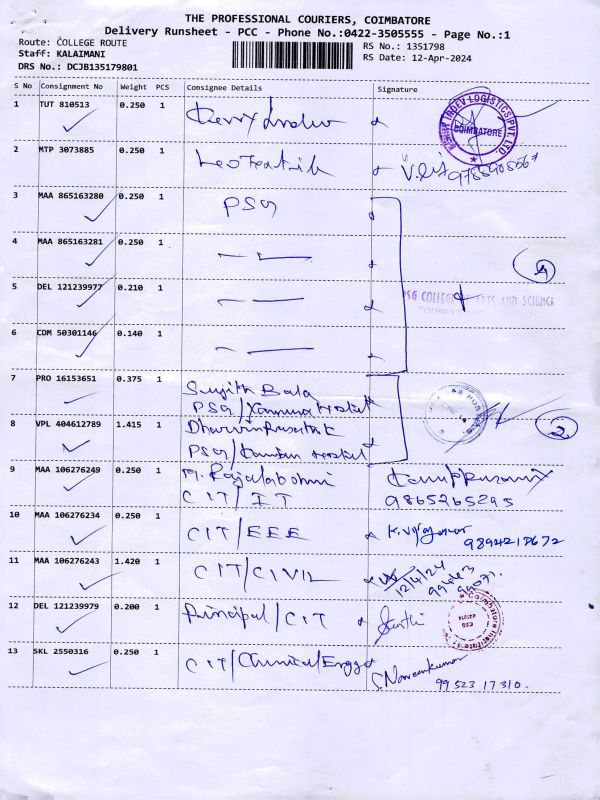 THE PROFESSIONAL COURIERS, COIMBATORE
Delivery Runsheet - PCC - Phone No.:0422-3505555 - Page No.:1
Route: COLLEGE ROUTE
RS No.: 1351798
Staff: KALAIMANI
RS Date: 12-Apr-2024
DRS No.: DCJB135179801
S No Consignment No Weight PCS Consignee Details Signature
1 TUT 810513 0.250 1
INDEV LOGISTICS PVT. LTD.
COIMBATORE
2 MTP 3073885 0.250 1
3 MAA 865163280 0.250 1 PSG
4 MAA 865163281 0.250 1
4
5 DEL 121239977 0.210 1
PSG COLLEGE OF ARTS AND SCIENCE
6 CDM 50301146 0.140 1
7 PRO 16153651 0.375 1 Sujith Bala
PSG/Yamuna Hostel
8 VPL 404612789 1.415 1
2
PSG/ Hostel
9 MAA 106276249 0.250 1 M. Rajalakshmi
CIT/IT 9865265295
10 MAA 106276234 0.250 1 CIT/EEE
9894217672
11 MAA 106276243 1.420 1 CIT/CIVIL
12/4/24
12 DEL 121239979 0.200 1 Principal/CIT
13 SKL 2550316 0.250 1 CIT/Chemical/Engg
S. Naveenkumar
99523 17310.